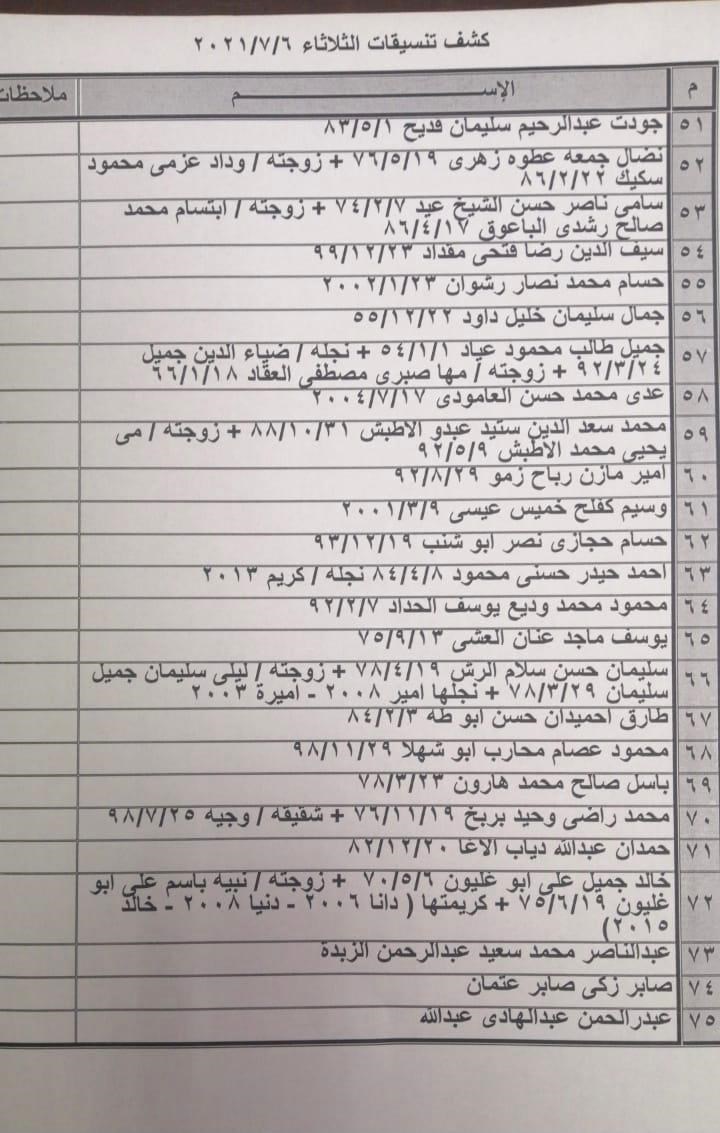 كشف تنسيقات الثلاثاء ٢٠٢١/٧/٦
م الإســـــــم ملاحظات
٥١ جودت عبدالرحيم سليمان قديح ٨٣/٥/١
٥٢ نضال جمعه عطوه زهرى ٧٦/٥/١٩ + زوجته / وداد عزمى محمود
سكيك ٨٦/٢/٢٢
٥٣ سامى ناصر حسن الشيخ عيد ٧٤/٢/٧ + زوجته / ابتسام محمد
صالح رشدى الباعوق ٨٦/٤/١٧
٥٤ سيف الدين رضا فتحى مقداد ٩٩/١٢/٢٣
٥٥ حسام محمد نصار رشوان ٢٠٠٢/١/٢٣
٥٦ جمال سليمان خليل داود ٥٥/١٢/٢٢
٥٧ جميل طالب محمود عياد ٥٤/١/١ + نجله / ضياء الدين جميل
٩٢/٣/٢٤ + زوجته / مها صبرى مصطفى العقاد ٦٦/١/١٨
٥٨ عدى محمد حسن العامودى ٢٠٠٤/٧/١٧
٥٩ محمد سعد الدين ستيد عبدو الاطبش ٨٨/١٠/٣١ + زوجته / مى
يحيى محمد الاطبش ٩٢/٥/٩
٦٠ امير مازن رباح زمو ٩٢/٨/٢٩
٦١ وسيم كفلح خميس عيسى ٢٠٠١/٣/٩
٦٢ حسام حجازى نصر ابو شنب ٩٣/١٢/١٩
٦٣ احمد حيدر حسنى محمود ٨٤/٤/٨ نجله / كريم ٢٠١٣
٦٤ محمود محمد وديع يوسف الحداد ٩٢/٢/٧
٦٥ يوسف ماجد عنان العشى ٧٥/٩/١٣
٦٦ سليمان حسن سلام الرش ٧٨/٤/١٩ + زوجته / ليلى سليمان جميل
سليمان ٧٨/٣/٢٩ + نجلها امير ٢٠٠٨ - اميرة ٢٠٠٣
٦٧ طارق احميدان حسن ابو طه ٨٤/٢/٣
٦٨ محمود عصام محارب ابو شهلا ٩٨/١١/٢٩
٦٩ باسل صالح محمد هارون ٧٨/٣/٢٣
٧٠ محمد راضى وحيد بربخ ٧٦/١١/١٩ + شقيقه / وجيه ٩٨/٧/٢٥
٧١ حمدان عبدالله دياب الاغا ٨٢/١٢/٢٠
٧٢ خالد جميل على ابو غليون ٧٠/٥/٦ + زوجته / نبيه باسم على ابو
غليون ٧٥/٦/١٩ + كريمتها ( دانا ٢٠٠٦ - دنيا ٢٠٠٨ - خالد
٢٠١٥)
٧٣ عبدالناصر محمد سعيد عبدالرحمن الزبدة
٧٤ صابر زكى صابر عثمان
٧٥ عبدرالحمن عبدالهادى عبدالله